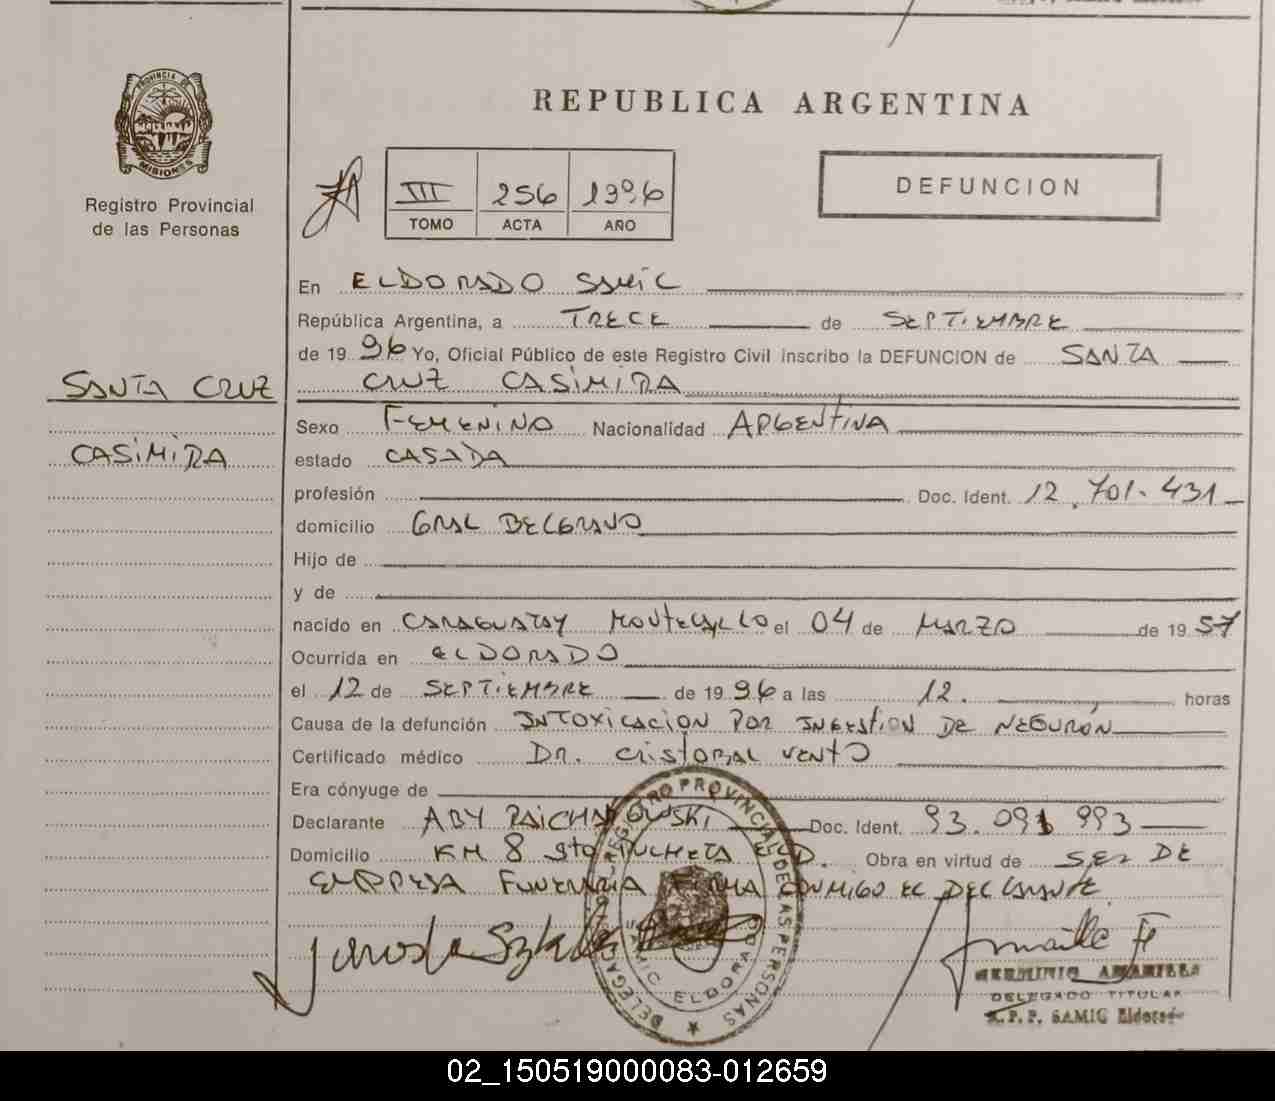 REPUBLICA ARGENTINA
PROVINCIA DE
MISIONES
Registro Provincial
de las Personas
III 256 1996
TOMO ACTA AÑO
DEFUNCION
En ELDORADO SAMIC
República Argentina, a TRECE de SEPTIEMBRE
de 1996 Yo, Oficial Público de este Registro Civil inscribo la DEFUNCION de SANTA
CRUZ CASIMIRA
SANTA CRUZ
CASIMIRA
Sexo FEMENINO Nacionalidad ARGENTINA
estado CASADA
profesión Doc. Ident. 12.701.431
domicilio GRAL BELGRANO
Hijo de
y de
nacido en CARAGUATAY MONTECARLO el 04 de MARZO de 1957
Ocurrida en ELDORADO
el 12 de SEPTIEMBRE de 1996 a las 12. horas
Causa de la defunción INTOXICACION POR INGESTION DE NEGURON
Certificado médico DR. CRISTOBAL VENTO
Era cónyuge de
Declarante ABY Doc. Ident. 93.091 993
Domicilio KM 8 Obra en virtud de SER DE
EMPRESA FUNERARIA FIRMA CONMIGO EL DECLARANTE
DELEGA REGISTRO PROVINCIAL DE LAS PERSONAS
SAMIC ELDORADO
HERMINIO AMARILLA
DELEGADO TITULAR
R.P.P. SAMIC Eldorado
02_150519000083-012659